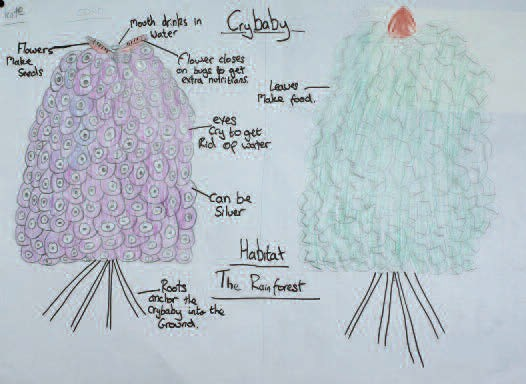 Kate
Crybaby
Mouth drinks in
water
Flowers
Make
Seeds
Flower closes
on bugs to get
extra nutritians.
Leaves
Make food.
eyes
Cry to get
Rid of water
Can be
Silver
Habitat
The Rainforest
Roots
anchor the
Crybaby into the
Ground.